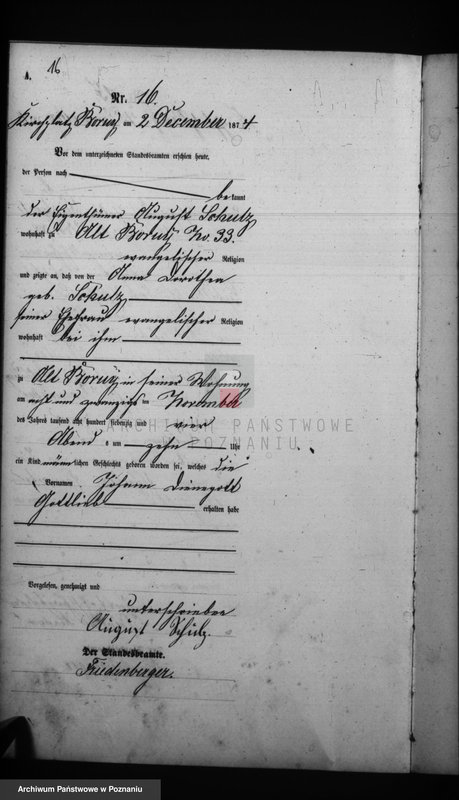 16
A.
Nr. 16.
Kirchplatz Boruy am 2 December 1874
Vor dem unterzeichneten Standesbeamten erschien heute,
der Person nach
bekannt
der Eigenthümer August Schulz
wohnhaft zu Alt Boruy No. 33.
evangelischer Religion
und zeigte an, daß von der Anna Dorothea
geb. Schulz
seiner Ehefrau evangelischer Religion
wohnhaft bei ihm
zu Alt Boruy in seiner Wohnung
am acht und zwanzigsten November
des Jahres tausend acht hundert siebenzig und vier
Abend s um zehn Uhr
ein Kind männlichen Geschlechts geboren worden sei, welches die
Vornamen Johann
Gottlieb erhalten habe
Vorgelesen, genehmigt und
unterschrieben
August Schulz.
Der Standesbeamte.
Friedenberger.
ARCHIWUM PAŃSTWOWE
W POZNANIU
Archiwum Państwowe w Poznaniu